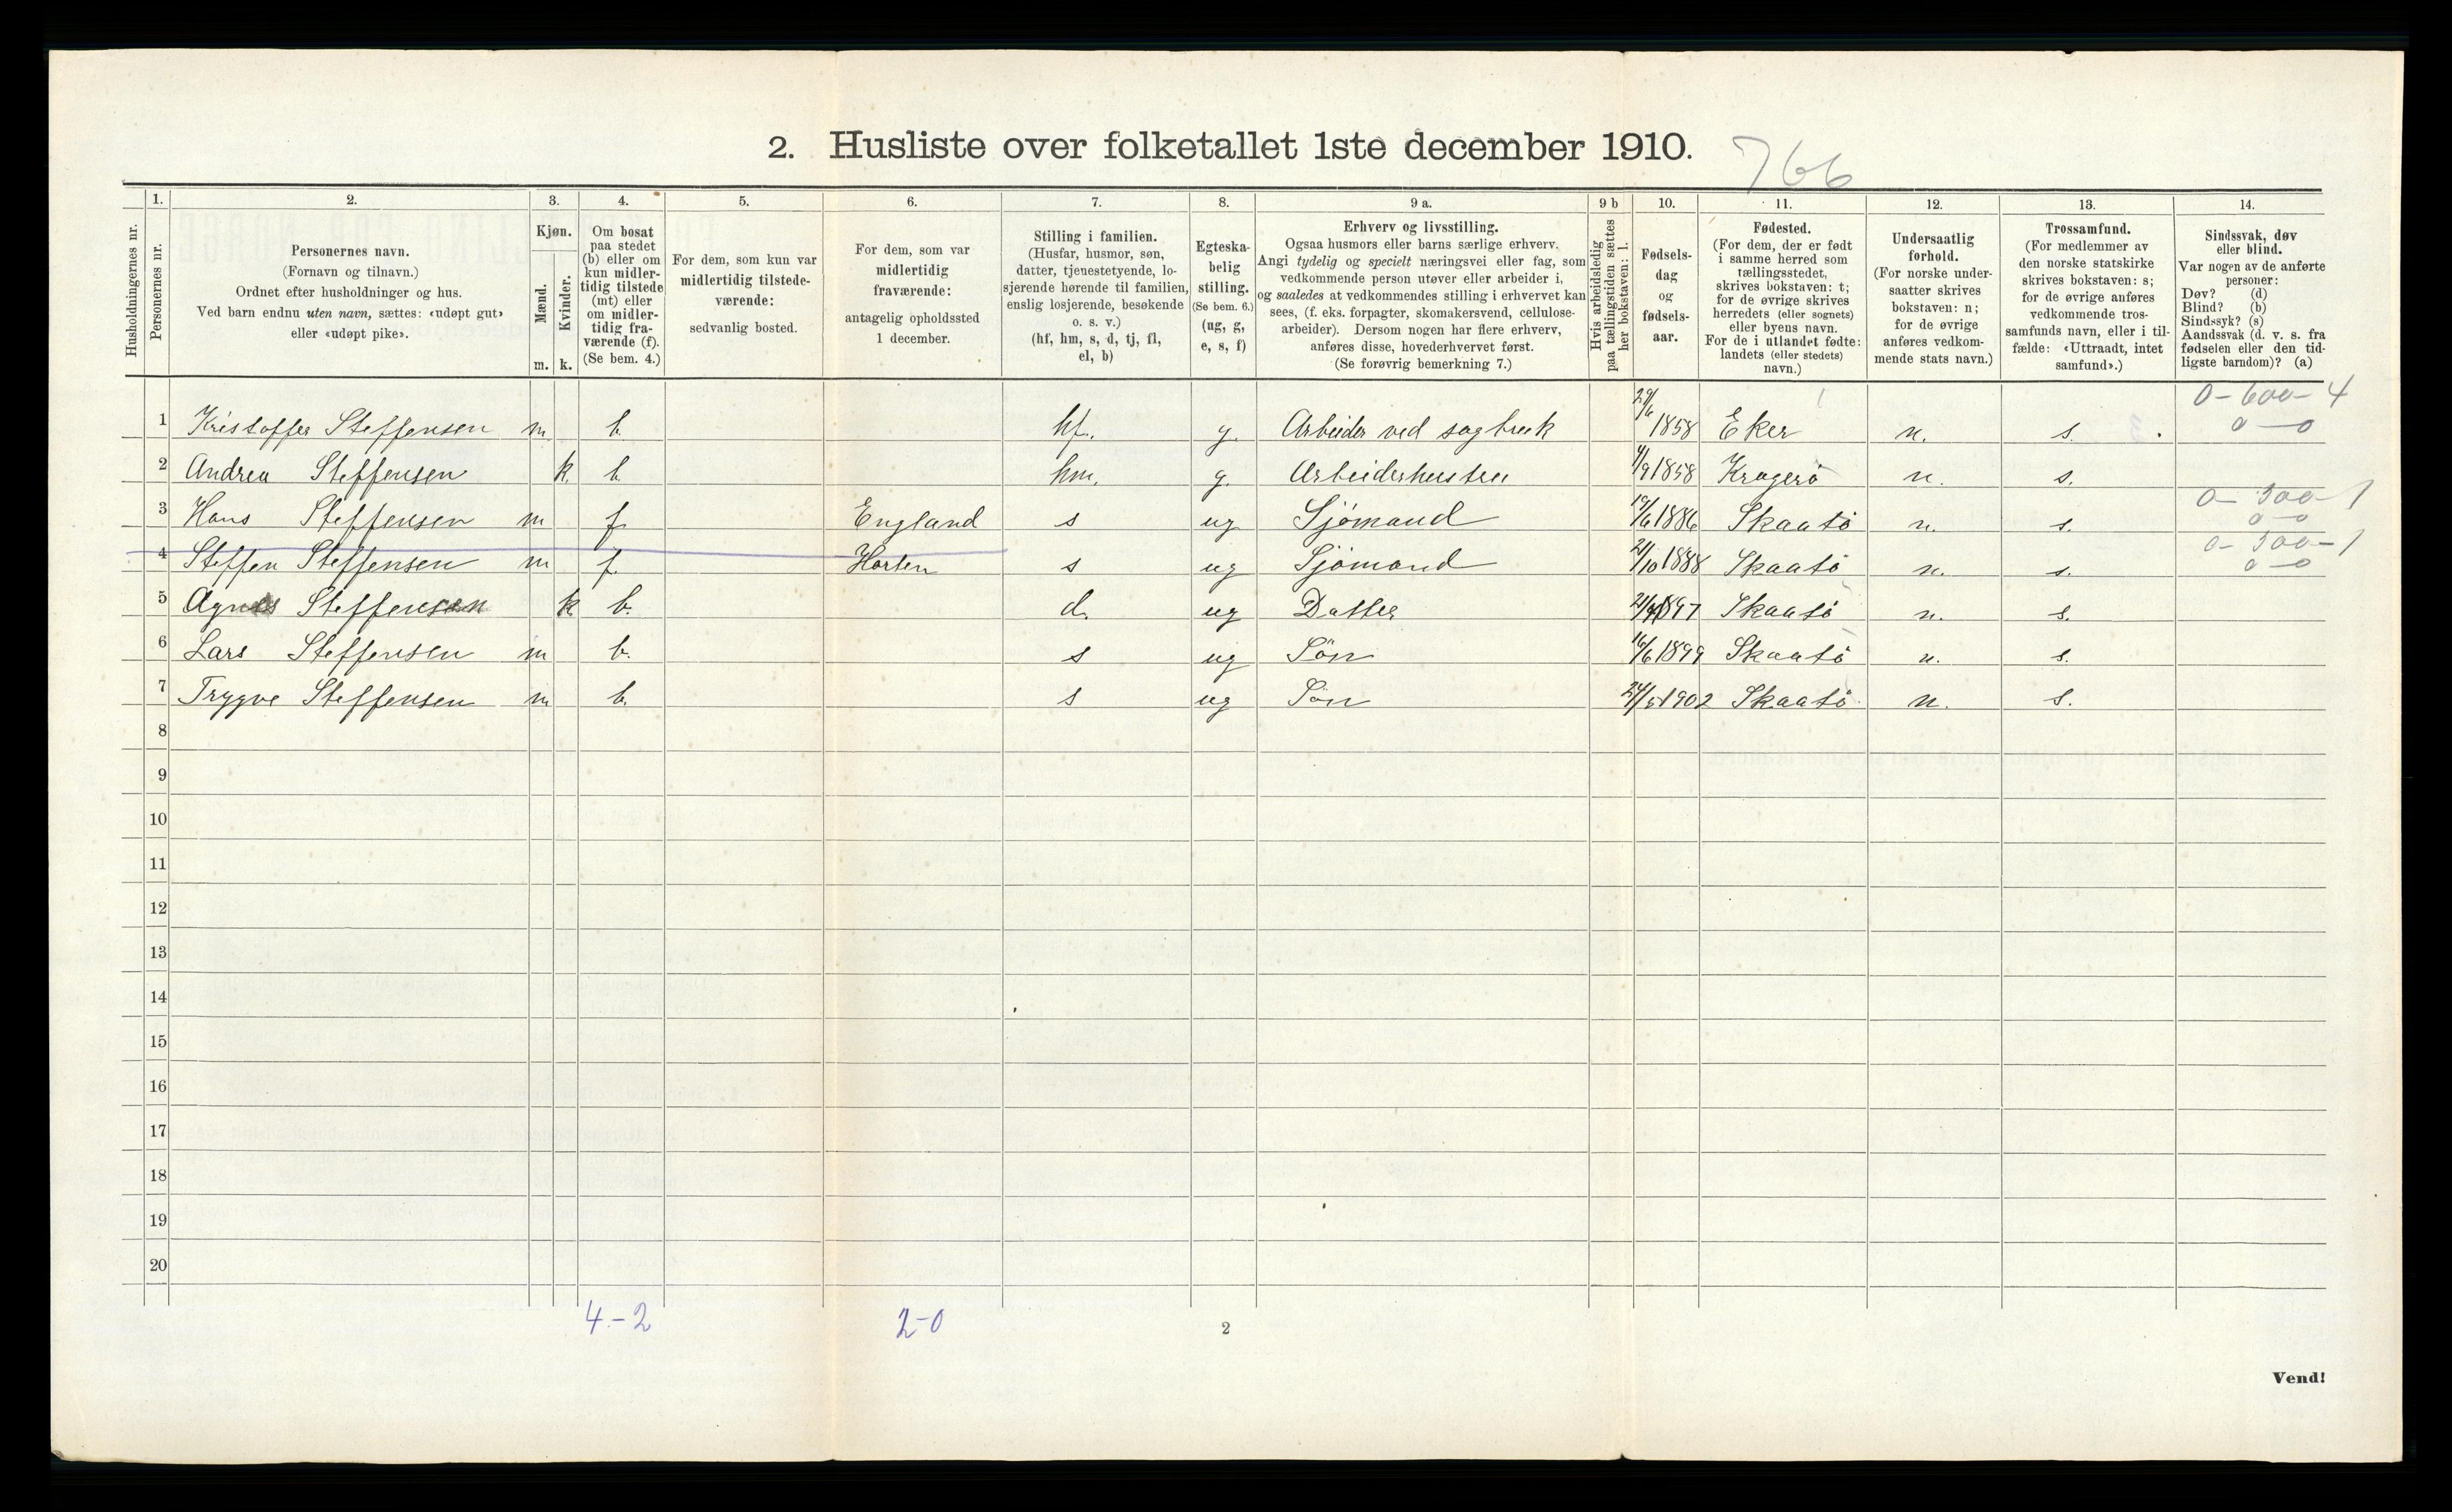 2. Husliste over folketallet 1ste december 1910.
766
1. 2. 3. 4. 5. 6. 7. 8. 9 a. 9 b 10. 11. 12. 13. 14.
Husholdningernes nr.
Personernes nr.
Personernes navn.
(Fornavn og tilnavn.)
Ordnet efter husholdninger og hus.
Ved barn endnu uten navn, sættes: «udøpt gut»
eller «udøpt pike».
Kjøn.
Mænd.
Kvinder.
m. k.
Om bosat
paa stedet
(b) eller om
kun midler-
tidig tilstede
(mt) eller
om midler-
tidig fra-
værende (f).
(Se bem. 4.)
For dem, som kun var
midlertidig tilstede-
værende:
sedvanlig bosted.
For dem, som var
midlertidig
fraværende:
antagelig opholdssted
1 december.
Stilling i familien.
(Husfar, husmor, søn,
datter, tjenestetyende, lo-
sjerende hørende til familien,
enslig losjerende, besøkende
o. s. v.)
(hf, hm, s, d, tj, fl,
el, b)
Egteska-
belig
stilling.
(Se bem. 6.)
(ug, g,
e, s, f)
Erhverv og livsstilling.
Ogsaa husmors eller barns særlige erhverv.
Angi tydelig og specielt næringsvei eller fag, som
vedkommende person utøver eller arbeider i,
og saaledes at vedkommendes stilling i erhvervet kan
sees, (f. eks. forpagter, skomakersvend, cellulose-
arbeider). Dersom nogen har flere erhverv,
anføres disse, hovederhvervet først.
(Se forøvrig bemerkning 7.)
Hvis arbeidsledig
paa tællingstiden sættes
her bokstaven: l.
Fødsels-
dag
og
fødsels-
aar.
Fødested.
(For dem, der er født
i samme herred som
tællingsstedet,
skrives bokstaven: t;
for de øvrige skrives
herredets (eller sognets)
eller byens navn.
For de i utlandet fødte:
landets (eller stedets)
navn.)
Undersaatlig
forhold.
(For norske under-
saatter skrives
bokstaven: n;
for de øvrige
anføres vedkom-
mende stats navn.)
Trossamfund.
(For medlemmer av
den norske statskirke
skrives bokstaven: s;
for de øvrige anføres
vedkommende tros-
samfunds navn, eller i til-
fælde: «Uttraadt, intet
samfund».)
Sindssvak, døv
eller blind.
Var nogen av de anførte
personer:
Døv? (d)
Blind? (b)
Sindssyk? (s)
Aandssvak (d. v. s. fra
fødselen eller den tid-
ligste barndom)? (a)
0-600-4
1 Kristoffer Steffensen m b. hf. g. Arbeider ved sagbruk 29/6 1858 Eker n. s. 0-0
2 Andrea Steffensen k. b. hm. g. Arbeiderhustru 4/9 1858 Kragerø n. s.
0-300-1
3 Hans Steffensen m f England s ug Sjømand 19/6 1886 Skaatø n. s. 0-0
0-300-1
4 Steffen Steffensen m f. Horten s ug Sjømand 21/10 1888 Skaatø n. s. 0-0
5 Agnes Steffensen k b. d. ug Datter 1897 Skaatø n. s.
6 Lars Steffensen m b. s ug Søn 16/6 1899 Skaatø n. s.
7 Trygve Steffensen m b. s ug Søn 24/5 1902 Skaatø n. s.
8
9
10
11
12
13
14
15
16
17
18
19
20
4-2 2-0
2
Vend!